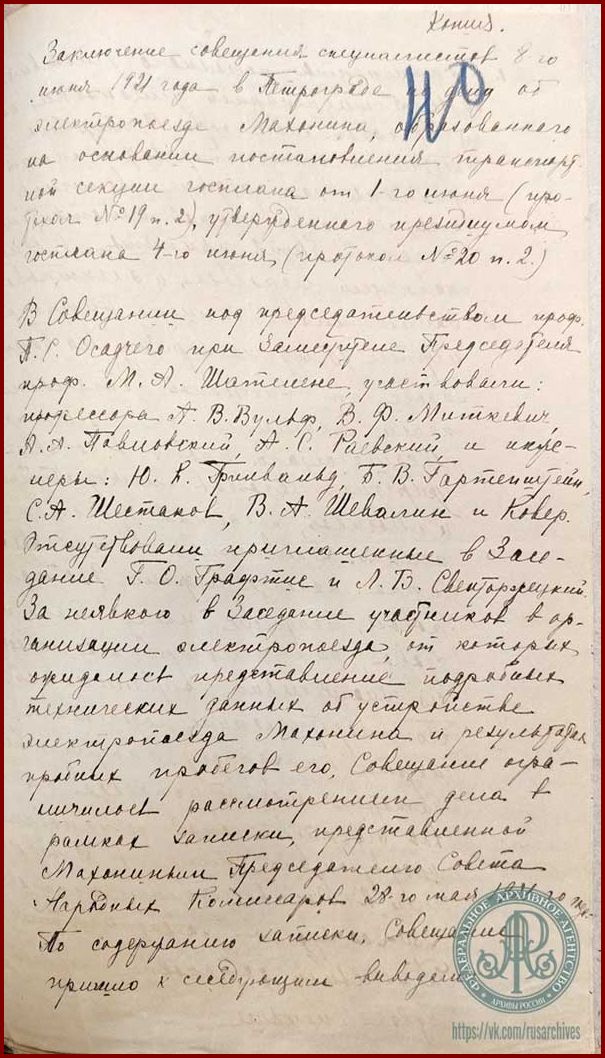 Копия.
Заключение совещания специалистов 8 го
июня 1921 года в Петрограде по делу об
электропоезде Махонина, образованного
на основании постановления транспорт
ной секции госплана от 1-го июня (про-
токол № 19 п. 2), утвержденного президиумом
госплана 4-го июня, (протокол № 20 п. 2.)
В Совещании под председательством проф.
П. С. Осадчего при Заместителе Председателя
проф. М. А. Шателене, участвовали:
профессора А. В. Вульф, В. Ф. Миткевич,
А. А. Павловский, А. С. Раевский, и инже-
неры: Ю. К. Гринвальд, Б. В. Гартенштейн,
С. А. Шестаков, В. А. Шевалин и Ковер.
Отсутствовали приглашенные в Засе-
дание Г. О. Графтио и Л. В. Свенторжецкий.
За неявкою в Заседание участников в ор-
ганизации электропоезда, от которых
ожидалось представление подробных
технических данных об устройстве
электропоезда Махонина и результатах
пробных пробегов его, Совещание огра-
ничилось рассмотрением дела в
рамках записки, представленной
Махониным Председателю Совета
Народных Комиссаров 28-го мая 1921-го
По содержанию записки, Совещание
пришло к следующим выводам
ФЕДЕРАЛЬНОЕ АРХИВНОЕ АГЕНТСТВО
АРХИВЫ РОССИИ
https://vk.com/rusarchives